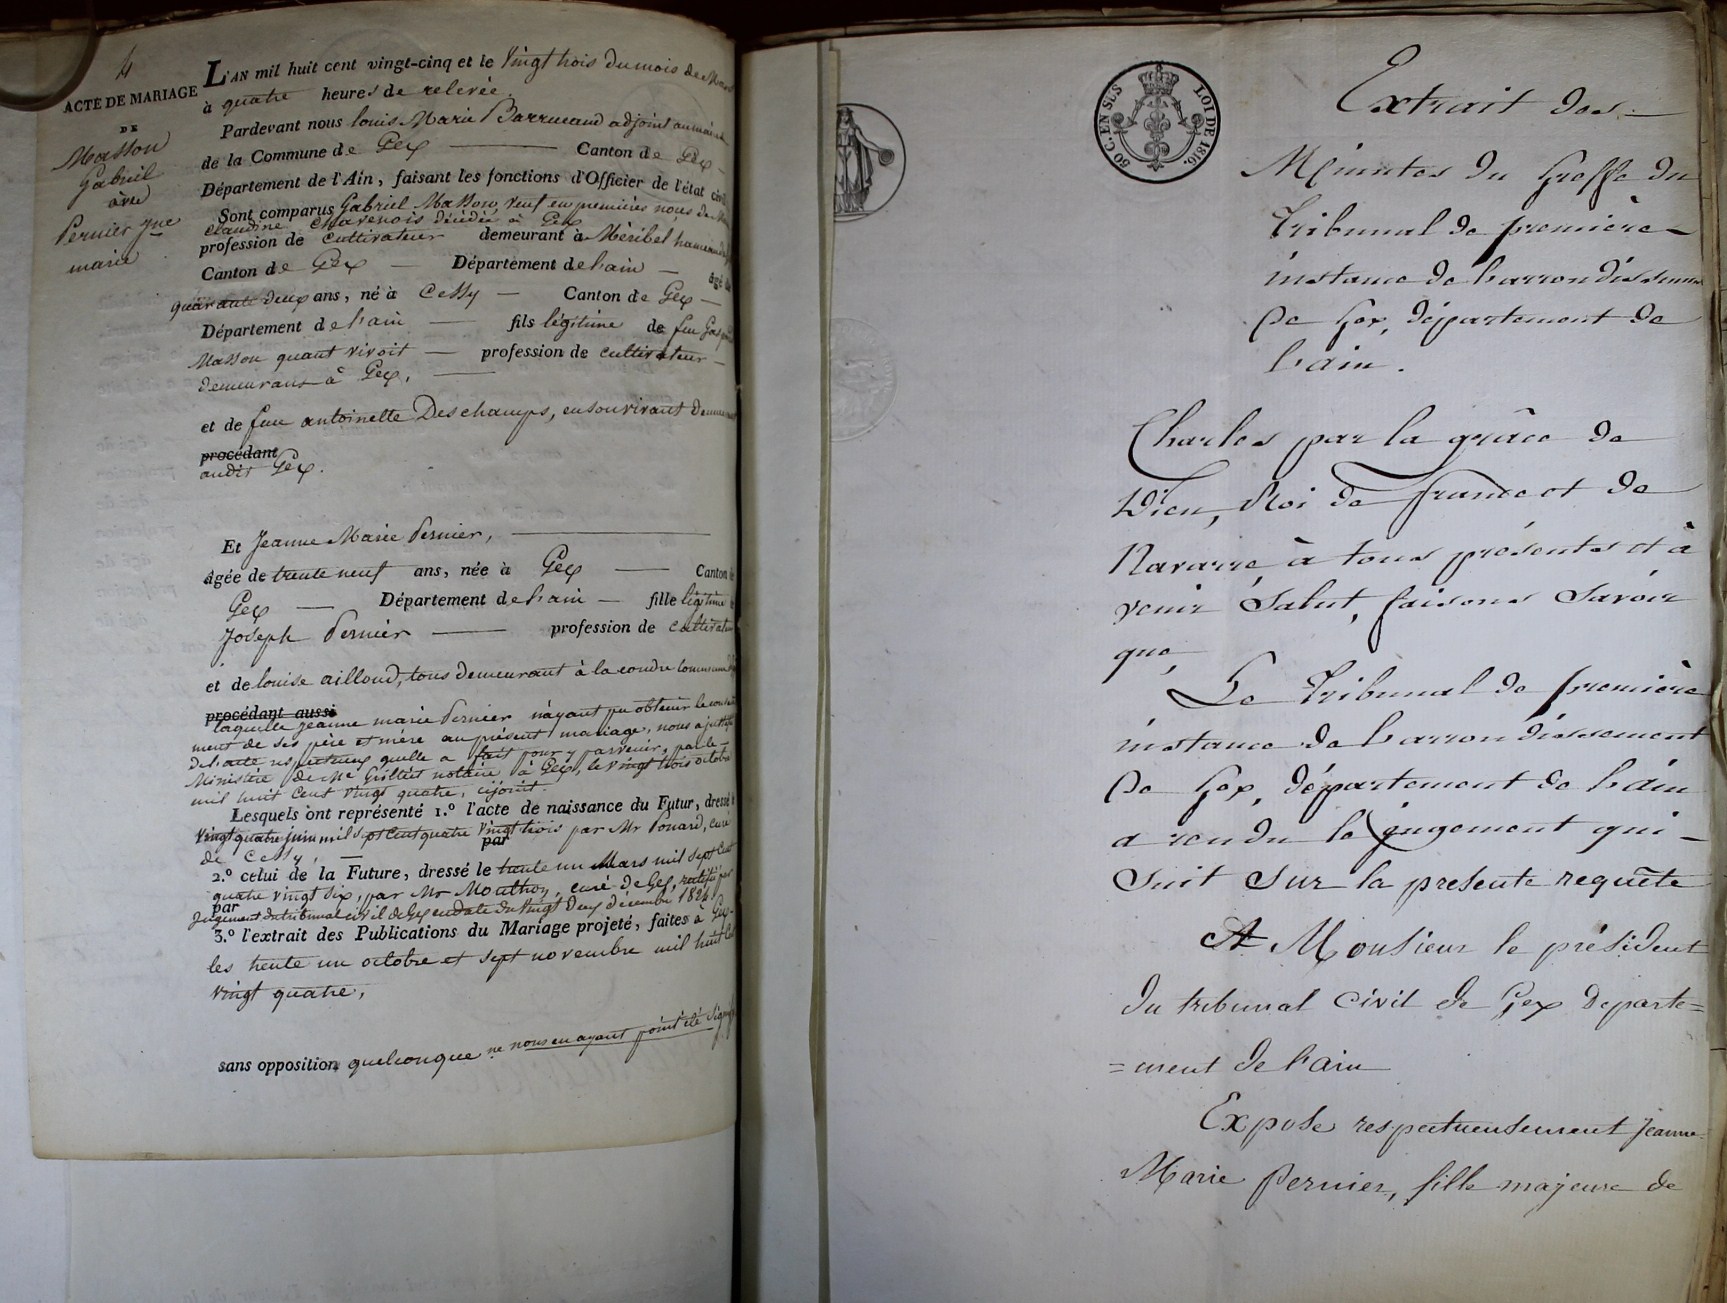 4
ACTE DE MARIAGE
DE
Masson
Gabriel
avec
Pernier Jne
marie
L'AN mil huit cent vingt-cinq et le vingt trois du mois de
à quatre heures de relevée.
Pardevant nous louis Marie Barrucand adjoint au maire
de la Commune de Gex — Canton de Gex —
Département de l'Ain, faisant les fonctions d'Officier de l'état civil
Sont comparus Gabriel Masson, veuf en premières noces de
Claudine Chavenois décédée à Gex
profession de cultivateur demeurant à Méribel hameau
Canton de Gex — Département de l'ain — âgé de
quarante deux ans, né à Cessy — Canton de Gex —
Département de l'ain — fils légitime de feu
Masson quant vivoit — profession de cultivateur —
demeurant à Gex, —
et de feue antoinette Deschamps, en son vivant
procédant
audit Gex.
Et Jeanne Marie Pernier, —
âgée de trente neuf ans, née à Gex — Canton de
Gex — Département de l'ain — fille légitime de
Joseph Pernier — profession de cultivateur
et de louise ailloud, tous demeurant à la coudre
procédant aussi
laquelle jeanne marie Pernier n'ayant pu obtenir le consente
ment de ses père et mère au présent mariage, nous a justifié
de l'acte respectueux quelle a fait pour y parvenir, par le
Ministère de Me Grillet notaire à Gex, le vingt trois octobre
mil huit cent vingt quatre, cijoint.
Lesquels ont représenté 1.º l'acte de naissance du Futur, dressé le
vingt quatre juin mil sept cent quatre vingt trois par Mr Ponard, curé
par
de Cessy, —
2.º celui de la Future, dressé le trente un Mars mil sept cent
quatre vingt six, par Mr Mouthon, curé de Gex, rectifié par
par
jugement du tribunal civil de Gex en date du vingt deux décembre 1824.
3.º l'extrait des Publications du Mariage projeté, faites à Gex
les trente un octobre et sept novembre mil huit cent
vingt quatre,
sans opposition quelconque ne nous en ayant point été signifié
50 C. EN SUS
LOI DE 1816.
Extrait des
Minutes du Greffe du
Tribunal de première
instance de l'arrondissement
De Gex, département de
l'ain.
Charles par la grâce de
Dieu, Roi de france et de
Navarre, à tous présents et à
venir Salut, faisons Savoir
que,
Le Tribunal de première
instance de l'arrondissement
De Gex, département de l'ain
a rendu le jugement qui
Suit Sur la presente requête
A Monsieur le président
du tribunal civil de Gex Departe=
=ment de l'ain
Expose respectueusement Jeanne
Marie Pernier, fille majeure de